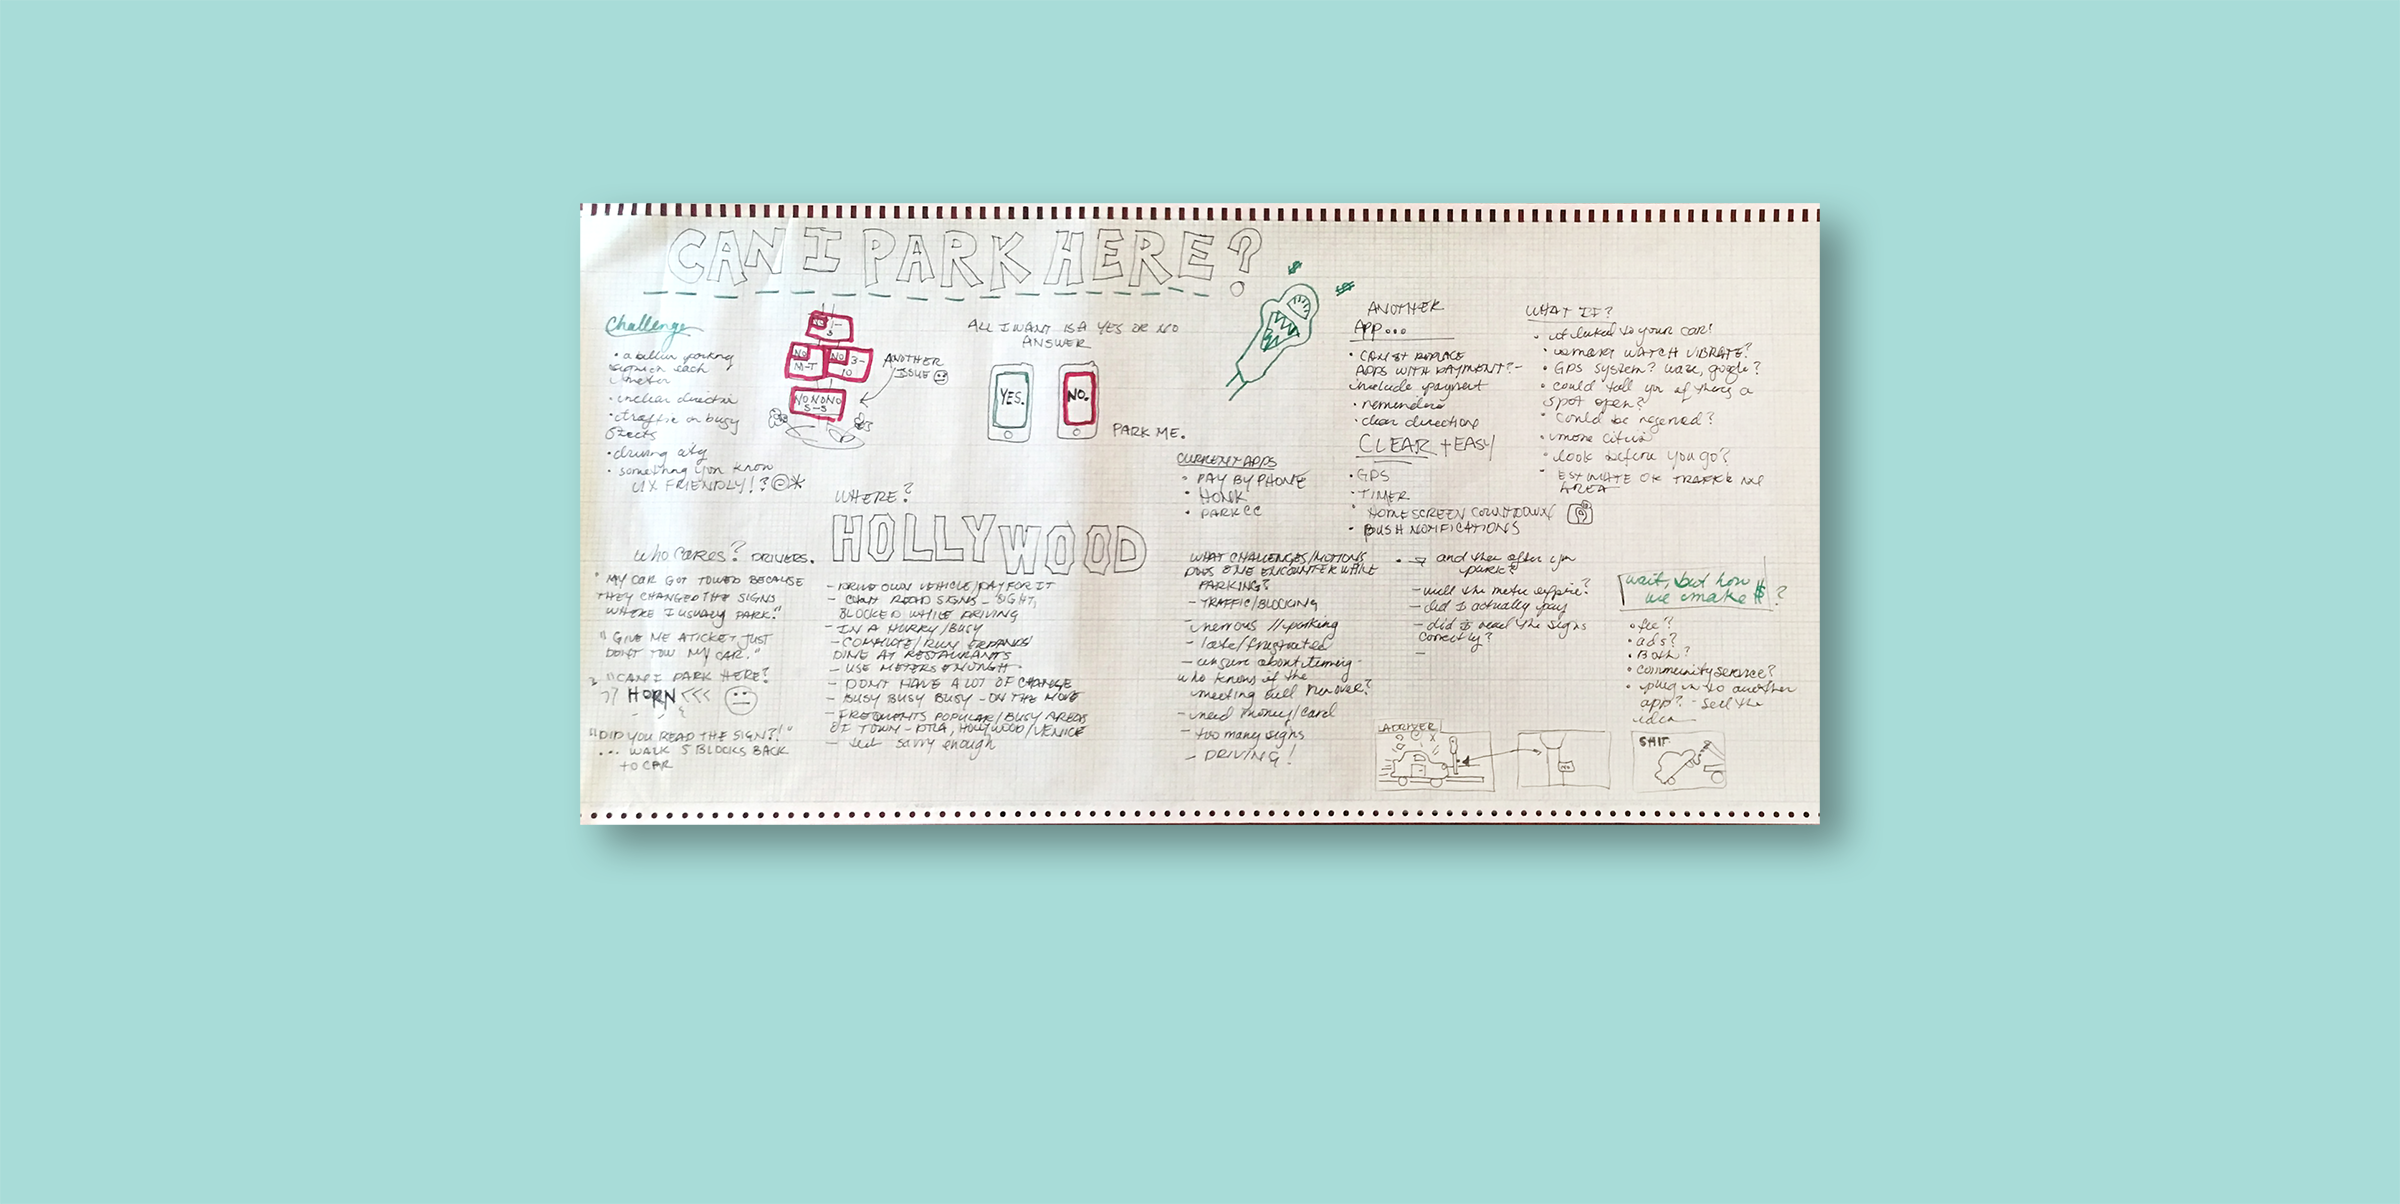 CAN I PARK HERE?
Challenge
• a billion parking
signs on each
meter
• unclear direction
• traffic on busy
streets
• driving
• something you know
UX FRIENDLY!?
NO
3
NO
M-T
NO 3-
10
NO NO NO
5-5
ANOTHER
ISSUE
ALL I WANT IS A YES OR NO
ANSWER
YES.
NO.
PARK ME.
$
$
ANOTHER
APP...
• CAN IT REPLACE
APPS WITH PAYMENT? -
include payment
• reminders
• clear directions
CLEAR + EASY
• GPS
• TIMER
• HOMESCREEN COUNTDOWN
• PUSH NOTIFICATIONS
WHAT IF?
• it linked to your car!
• WATCH VIBRATE?
• GPS system? waze, google?
• could tell you if there's a
spot open?
• could be reserved?
• more cities
• look before you go?
• ESTIMATE OK TRAFFIC
AREA
CURRENT APPS
• PAY BY PHONE
• HONK
• PARKCC
WHERE?
HOLLYWOOD
- DRIVE OWN VEHICLE/PAY FOR IT
- CAN'T READ SIGNS - SIGHT,
BLOCKED WHILE DRIVING
- IN A HURRY/BUSY
- COMMUTE/RUN ERRANDS/
DINE AT RESTAURANTS
- USE METERS ENOUGH
- DON'T HAVE A LOT OF CHANGE
- BUSY BUSY BUSY - ON THE MOVE
- FREQUENTS POPULAR/BUSY AREAS
OF TOWN - DTLA, HOLLYWOOD/VENICE
- savvy enough
who cares? DRIVERS.
"MY CAR GOT TOWED BECAUSE
THEY CHANGED THE SIGNS
WHERE I USUALLY PARK."
"GIVE ME A TICKET, JUST
DON'T TOW MY CAR."
"CAN I PARK HERE?
>> HORN <<<
"DID YOU READ THE SIGN?!"
... WALK 5 BLOCKS BACK
TO CAR
WHAT CHALLENGES/MOTIONS
DOES ONE ENCOUNTER WHILE
PARKING?
- TRAFFIC/BLOCKING
- nervous // parking
- late/frustrated
- unsure about timing -
who knows if the
meeting will run over?
- need money/card
- too many signs
- DRIVING!
• and then after you
park?
- will the meter expire?
- did I actually pay
- did I read the signs
correctly?
-
wait, but how
we make $?
• fee?
• ads?
• Both?
• community service?
• plug in to another
app? - sell the
idea
LA DRIVER
NO
SHIT.